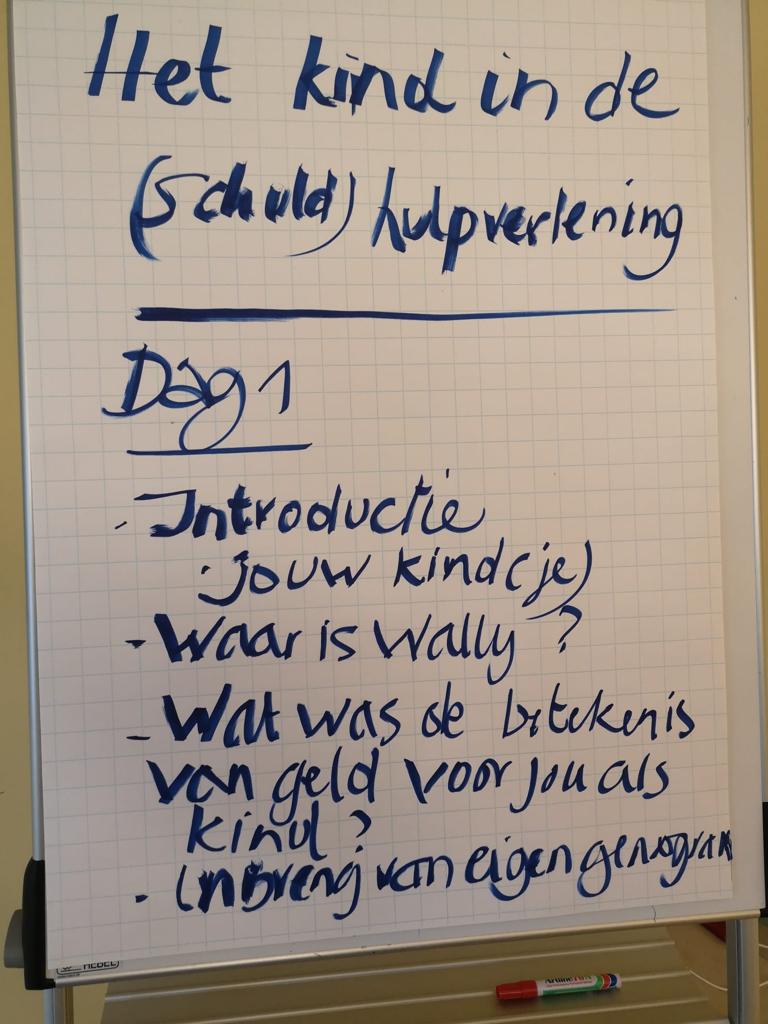 Het kind in de
(schuld) hulpverlening
Dag 1
- Introductie
· jouw kind(je)
- Waar is Wally ?
- Wat was de betekenis
van geld voor jou als
kind ?
- inbreng van eigen genogram
Artline